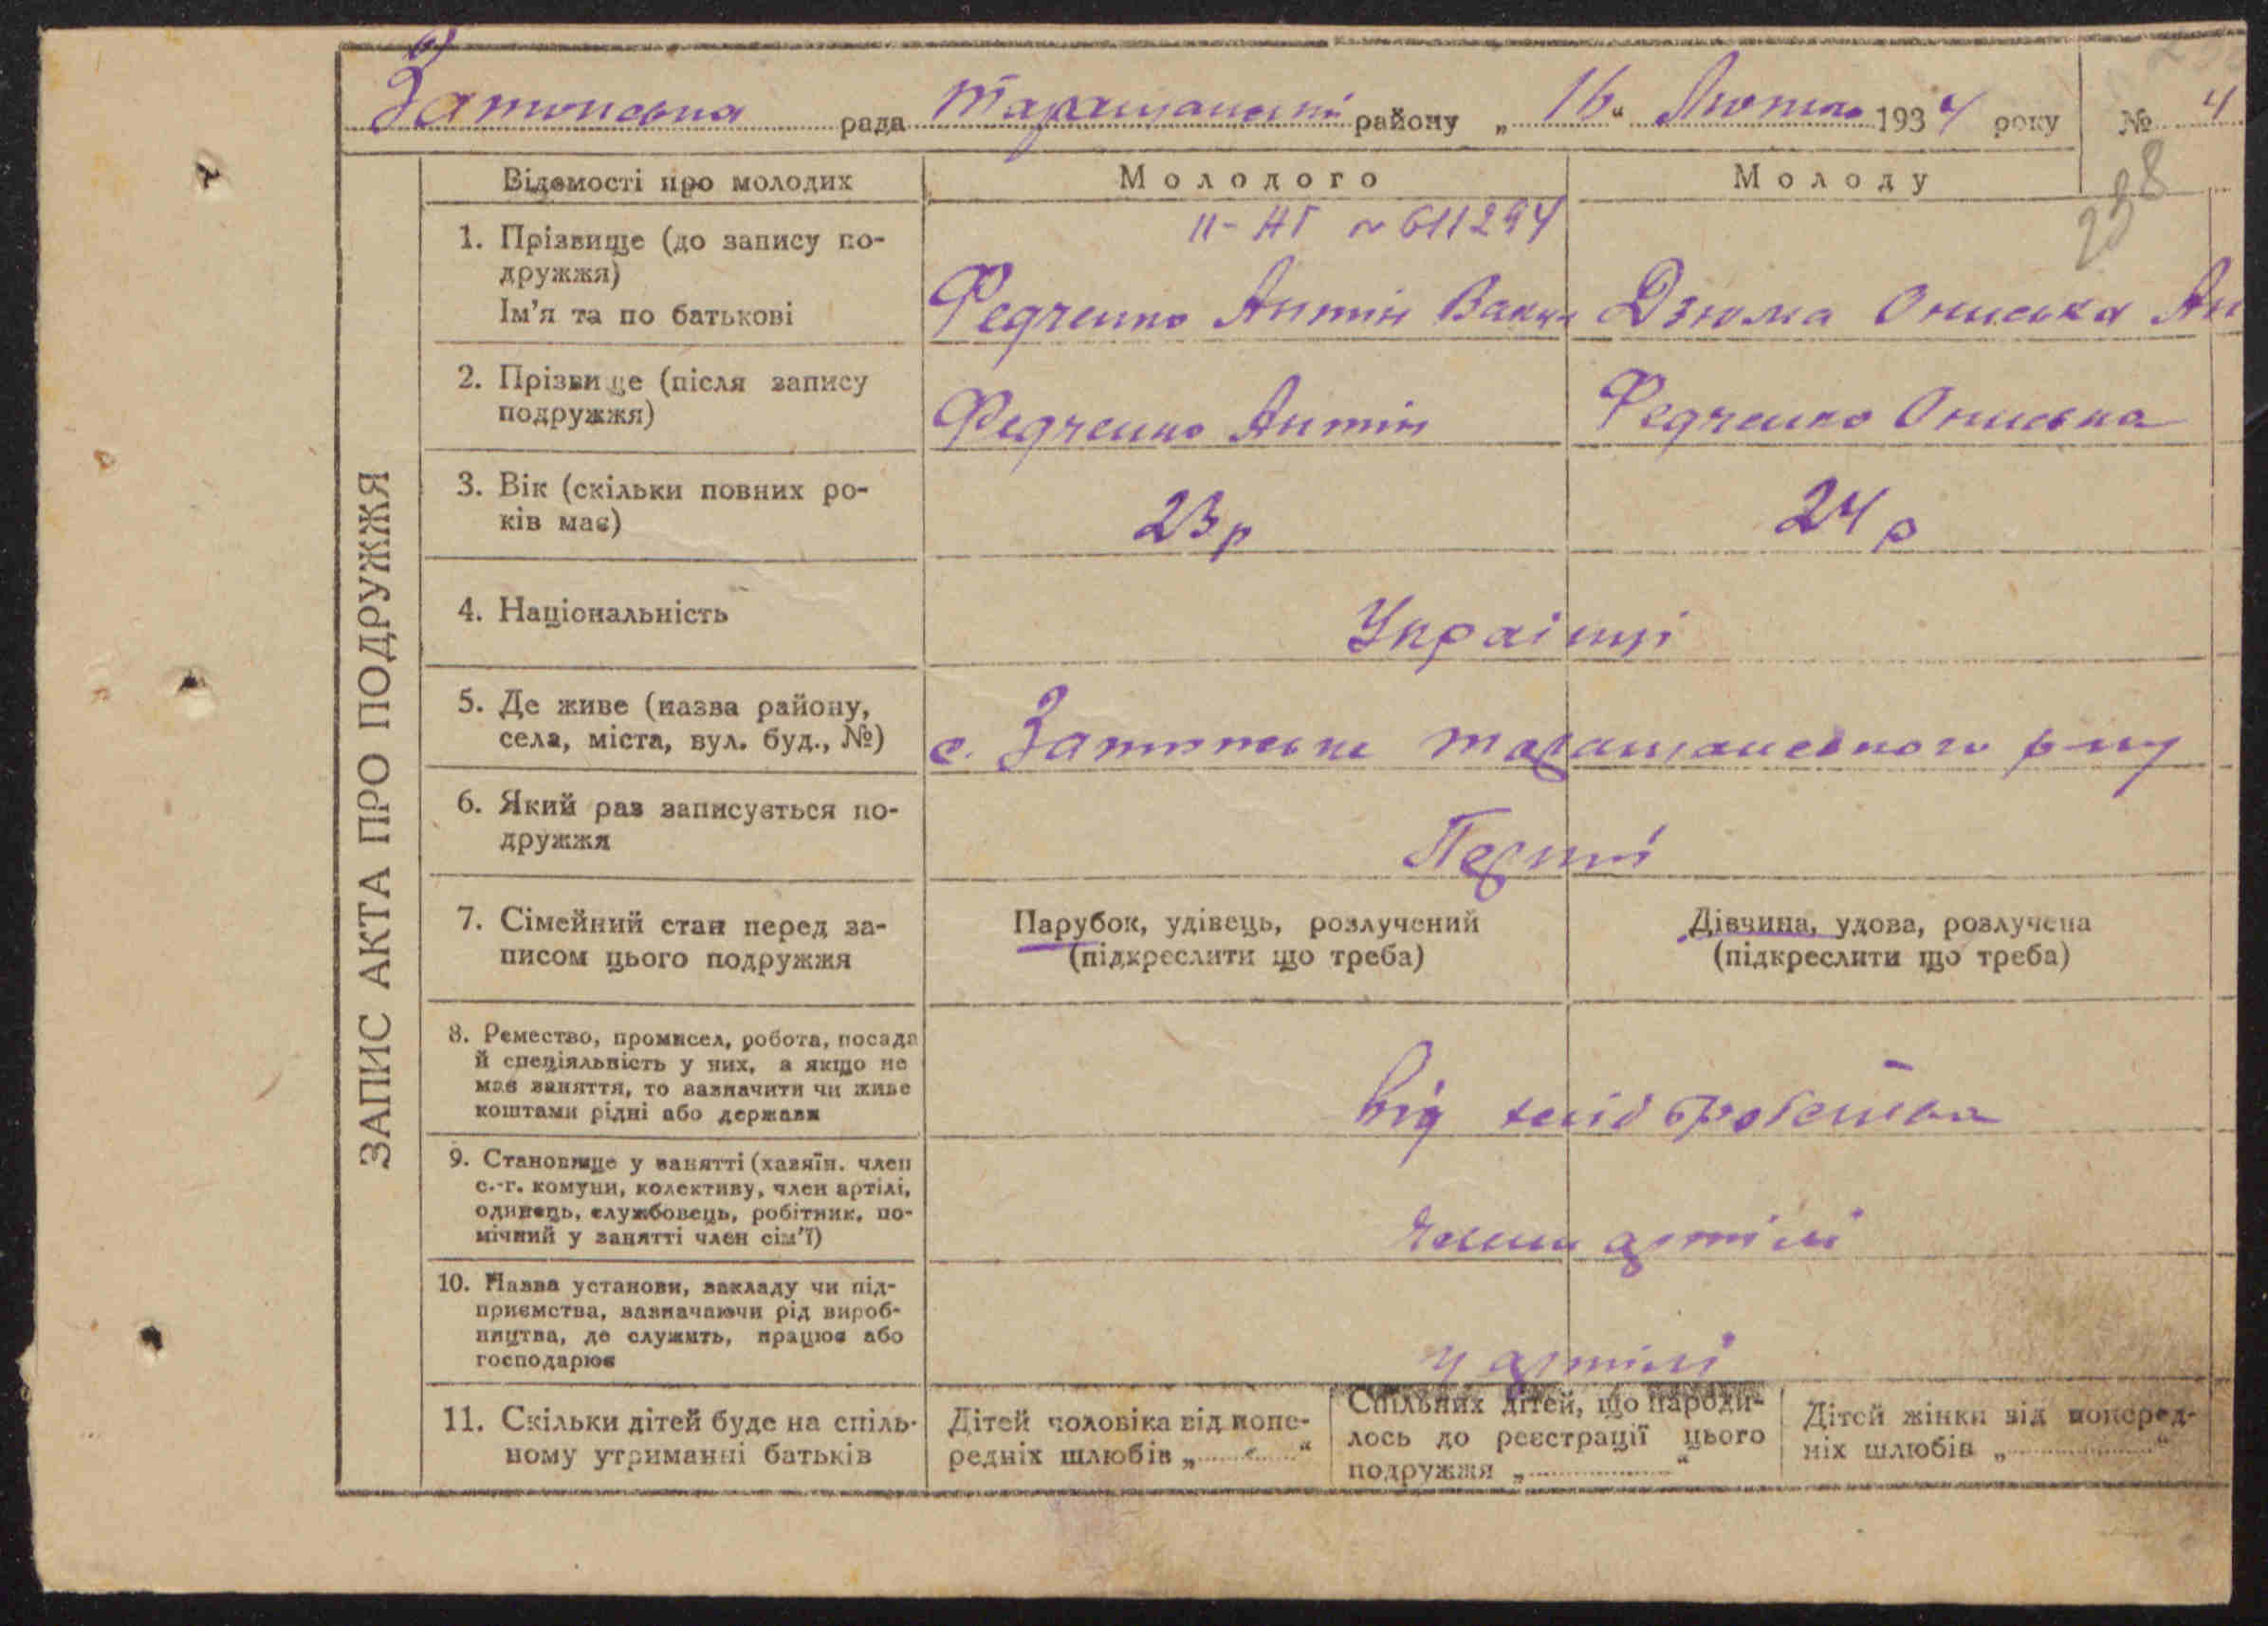 рада Таращанський району „16“ Лютого 1934 року № 4
238
ЗАПИС АКТА ПРО ПОДРУЖЖЯ
Відомості про молодих
Молодого
Молоду
1. Прізвище (до запису по-
дружжя)
Ім'я та по батькові
II-НГ № 611294
Федченко Антін
Дзюма Ониська Ан
2. Прізвище (після запису
подружжя)
Федченко Антін
Федченко Ониська
3. Вік (скільки повних ро-
ків має)
23р
24р
4. Національність
Українці
5. Де живе (назва району,
села, міста, вул. буд., №)
с. таращанського р-ну
6. Який раз записується по-
дружжя
7. Сімейний стан перед за-
писом цього подружжя
Парубок, удівець, розлучений
(підкреслити що треба)
Дівчина, удова, розлучена
(підкреслити що треба)
8. Ремество, промисел, робота, посада
й спеціяльність у них, а якщо не
має заняття, то зазначити чи живе
коштами рідні або держави
від
9. Становище у занятті (хазяїн. член
с.-г. комуни, колективу, член артілі,
одинець, службовець, робітник, по-
мічний у занятті член сім'ї)
члени артілі
10. Назва установи, закладу чи під-
приємства, зазначаючи рід вироб-
ництва, де служить, працює або
господарює
у артілі
11. Скільки дітей буде на спіль-
ному утриманні батьків
Дітей чоловіка від попе-
редніх шлюбів „ “
Спільних дітей, що народи-
лось до реєстрації цього
подружжя „ “
Дітей жінки від поперед-
ніх шлюбів „ “